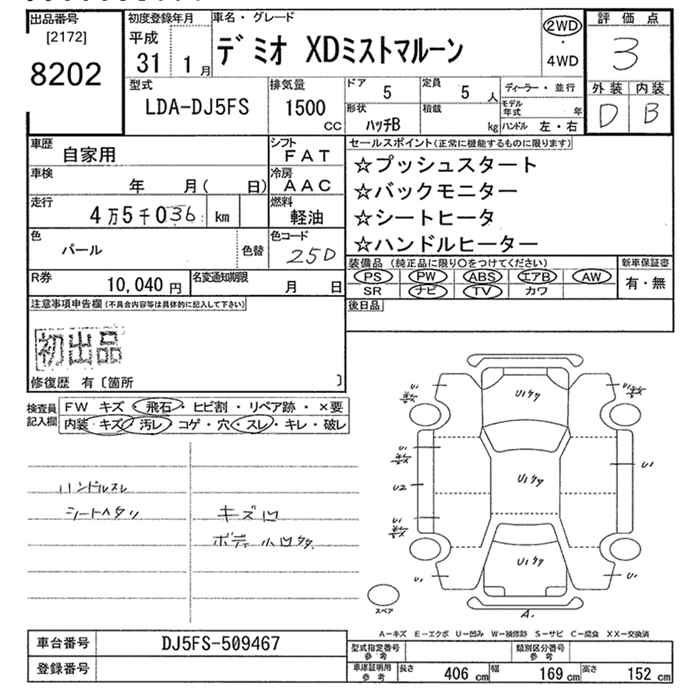 出品番号 初度登録年月 車名・グレード 2WD 評価点
[2172] 平成 デミオ XDミストマルーン
8202 31年 1月 4WD 3
型式 排気量 ドア 定員 ディーラー・並行 外装 内装
LDA-DJ5FS 1500 CC 5 5人 モデル年式 年 D B
形状 積載
ハッチB kg ハンドル 左・右
車歴 自家用 シフト FAT セールスポイント(正常に機能するものに限ります)
車検 年 月( 日) 冷房 AAC ☆プッシュスタート
走行 4万5千036 km 燃料 軽油 ☆バックモニター
☆シートヒータ
色 パール 色替 色コード 25D ☆ハンドルヒーター
装備品(純正品に限り○をつけてください) 新車保証書
R券 10,040円 名変通知期限 月 日 PS PW ABS エアB AW 有・無
SR ナビ TV カワ
注意事項申告欄(不具合内容等は具体的に記入して下さい) 後日品
初出品
修復歴 有〔箇所 〕
検査員記入欄 FW キズ・飛石・ヒビ割・リペア跡・×要
内装・キズ・汚レ・コゲ・穴・スレ・キレ・破レ
ハンドルスレ
シートヘタリ キズ凹
ボディ小凹
U1 U1
U1 U1
U2
U1
U1 U1
U1
U1
U1
スペア A1
A-キズ E-エクボ U-凹み W-補修跡 S-サビ C-腐食 XX-交換済
車台番号 DJ5FS-509467 型式指定番号 参考 類別区分番号 参考
登録番号 車庫証明用 参考 長さ 406 cm 幅 169 cm 高さ 152 cm